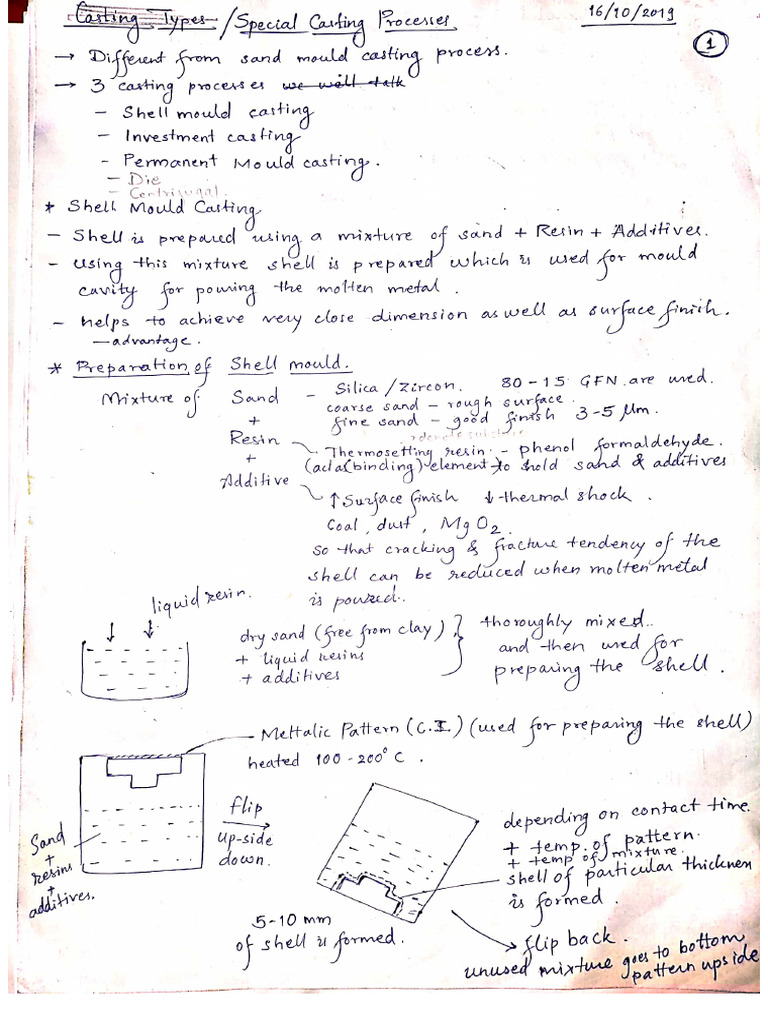 Casting Types / Special Casting Processes
16/10/2019
1
→ Different from sand mould casting process.
→ 3 casting processes we will talk
- Shell mould casting
- Investment casting
- Permanent Mould casting.
- Die
- Centrifugal.
* Shell Mould Casting
- Shell is prepared using a mixture of sand + Resin + Additives.
- using this mixture shell is prepared which is used for mould
cavity for pouring the molten metal.
- helps to achieve very close dimension as well as surface finish.
— advantage.
* Preparation of Shell mould.
Mixture of Sand - Silica / Zircon. 80-15 GFN are used.
coarse sand - rough surface.
+ fine sand - good finish 3-5 μm.
Resin - Thermosetting resin - phenol formaldehyde.
+ (acta(binding) element to hold sand & additives
Additive - ↑ Surface finish ↓ thermal shock.
Coal, dust, MgO2.
so that cracking & fracture tendency of the
shell can be reduced when molten metal
is poured.
liquid resin.
dry sand (free from clay)
+ liquid resins
+ additives
} thoroughly mixed.
and then used for
preparing the shell.
Mettalic Pattern (C.I.) (used for preparing the shell)
heated 100-200°C.
Sand
+
resins
+
additives.
flip
up-side
down.
depending on contact time.
+ temp. of pattern.
+ temp of mixture.
shell of particular thicknen
is formed.
5-10 mm
of shell is formed.
→ flip back.
unused mixture goes to bottom
pattern upside